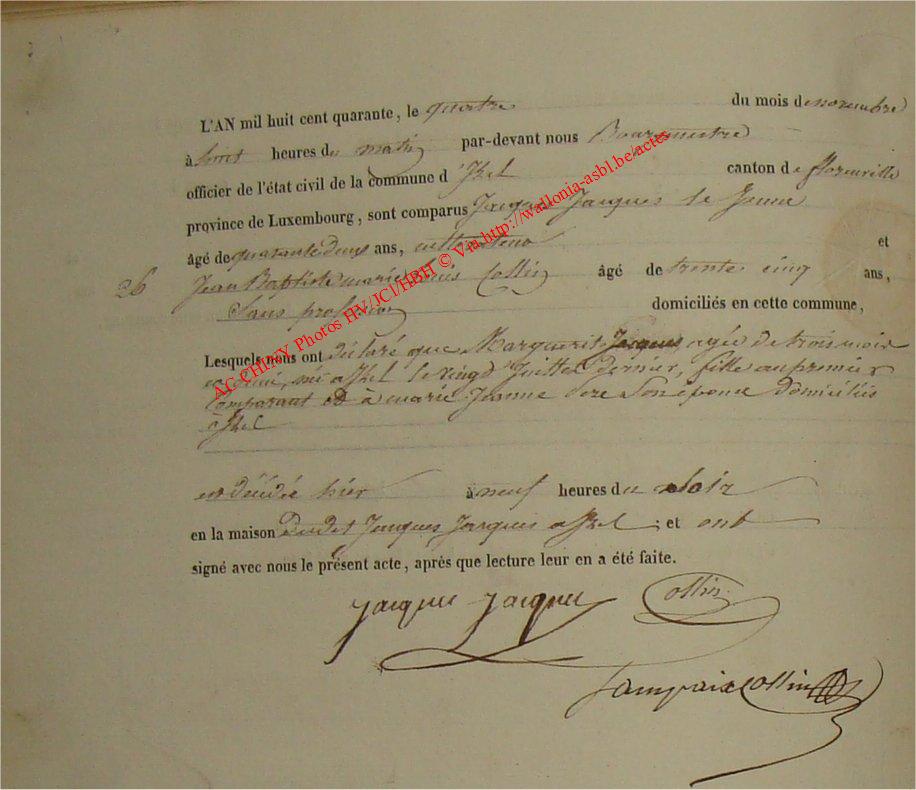 L'AN mil huit cent quarante, le quatre du mois de novembre
à huit heures du matin par-devant nous Bourgmestre
officier de l'état civil de la commune d'Izel canton de florenville
province de Luxembourg, sont comparus Jacques Jacques le Jeune
âgé de quarante deux ans, cultivateur et
26 Jean Baptiste marie Louis Collin âgé de trente cinq ans,
Sans profession domiciliés en cette commune,
Lesquels nous ont déclaré que Marguerite Jacques, agée de trois mois
et demi, née a Izel le vingt Juillet dernier, fille au premier
Comparant et à marie Jeanne son épouse Domiciliés
à Izel
est décédée hier à neuf heures du soir
en la maison dudit Jacques Jacques a Izel ; et ont
signé avec nous le présent acte, après que lecture leur en a été faite.
Jacques Jacques Collin
Collin
AC CHINY Photos HV/JCI/HBH © Via http://wallonia-asbl.be/actes